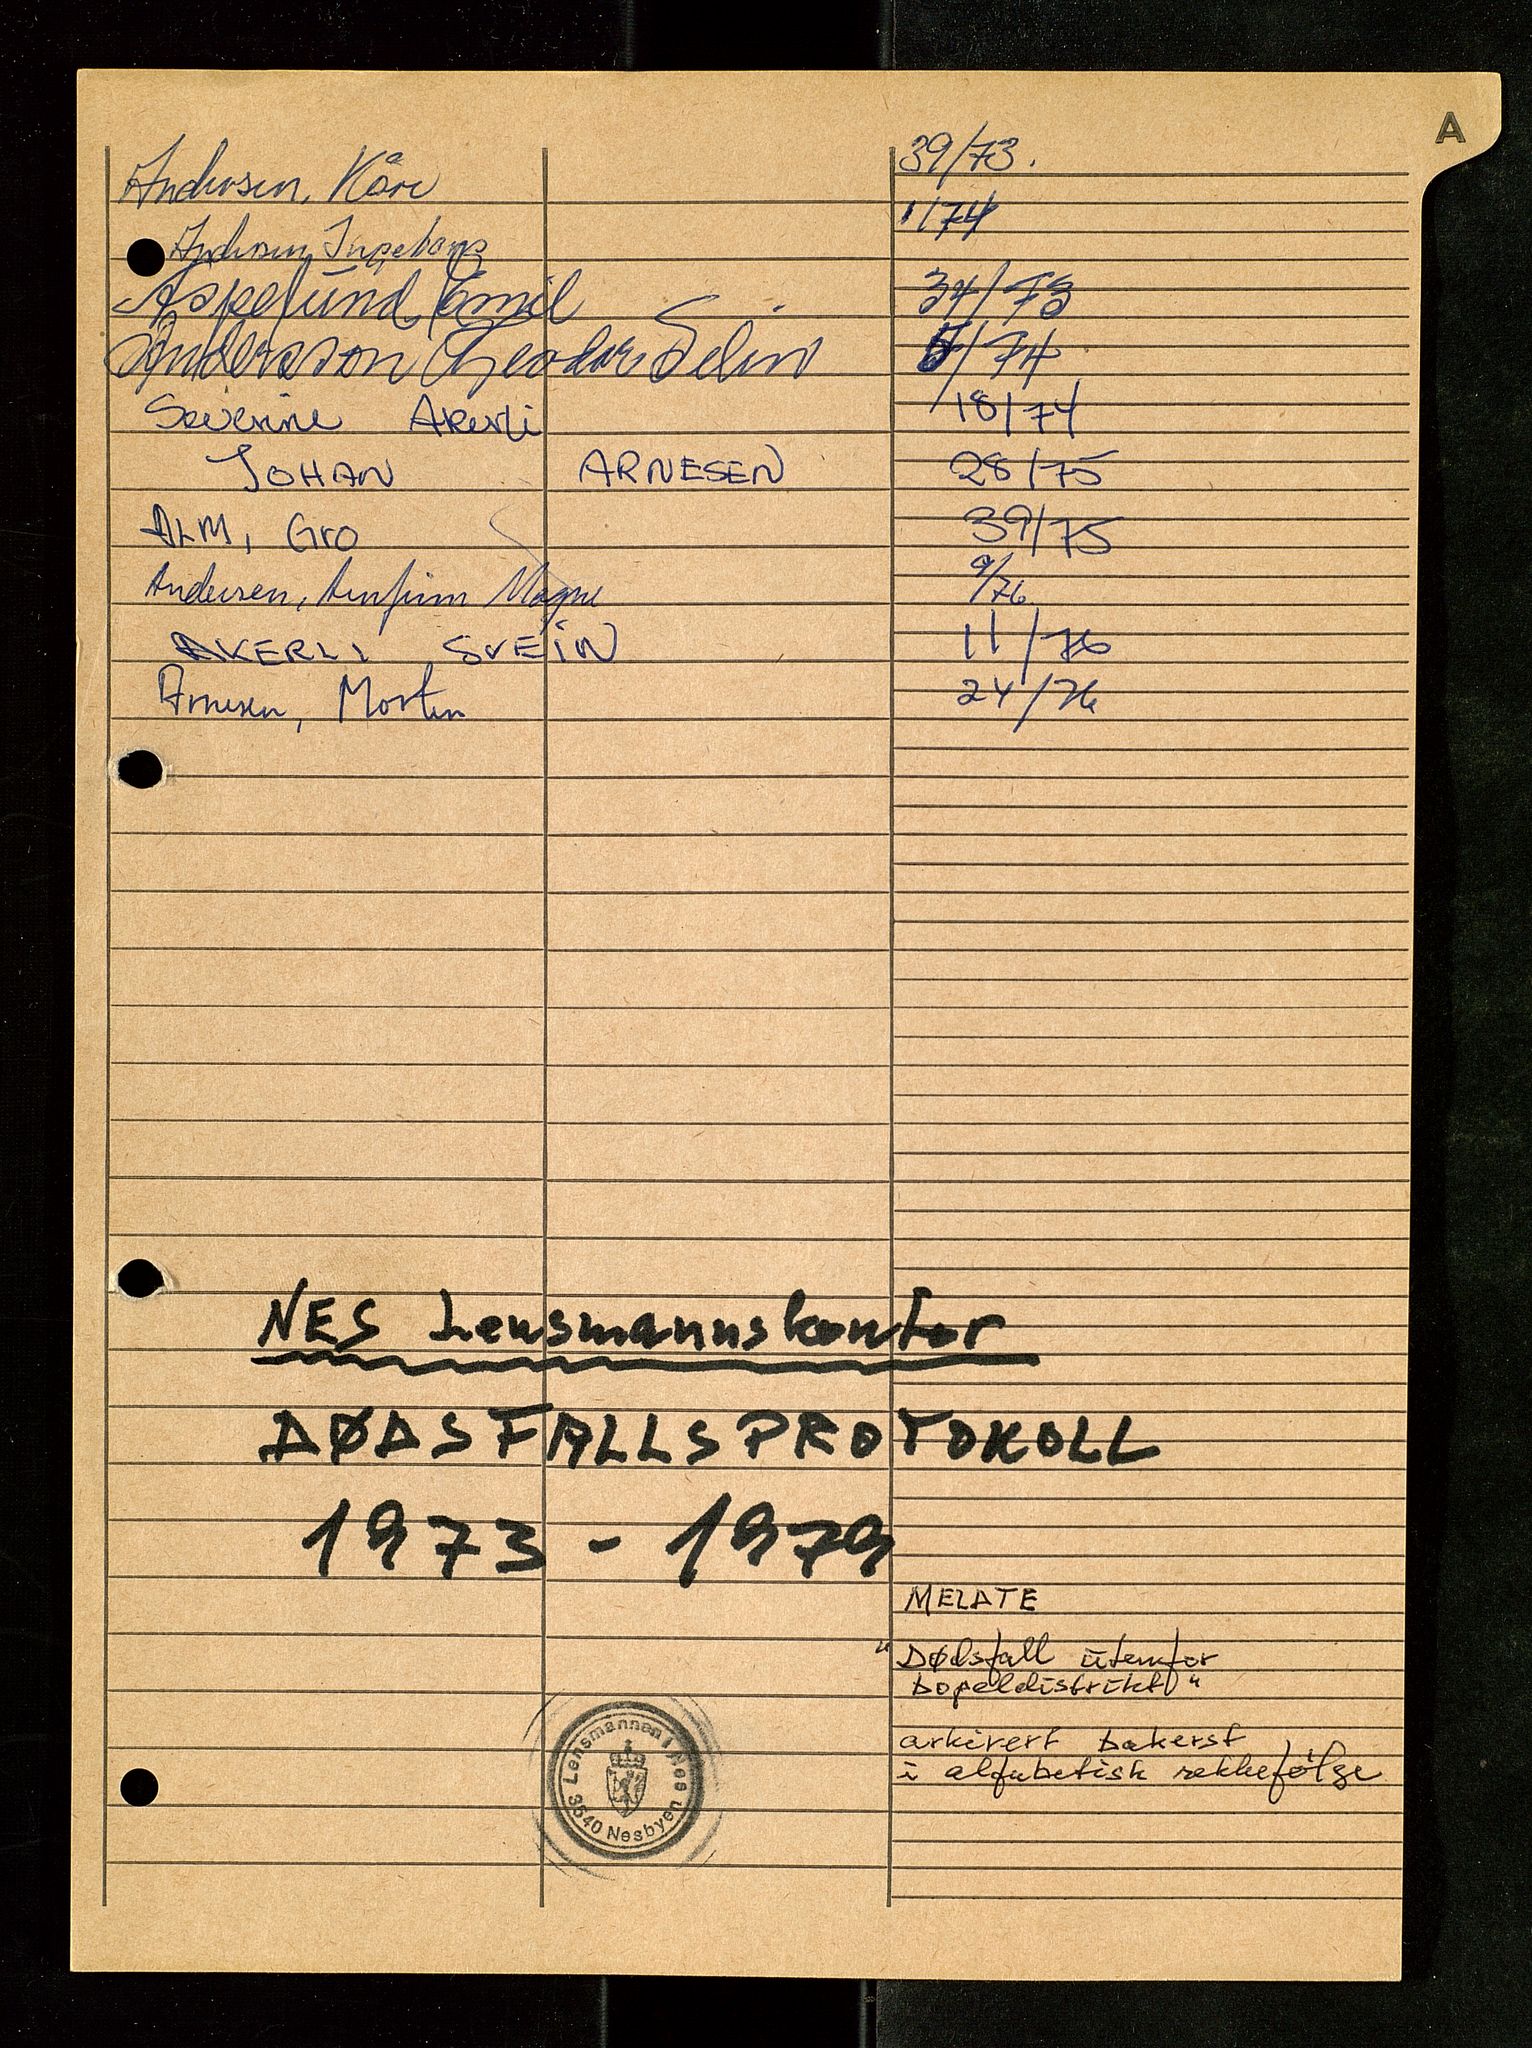 A
Andersen, Kåre 39/73.
Andersen, Ingeborg 1/74
Aspelund, Emil 34/73
Andersson Theodor Selin 5/74
Severine Akerli 18/74
JOHAN ARNESEN 28/75
ALM, Gro 39/75
Andersen, Arnfinn Magne 9/76
AKERLI SVEIN 11/76
Arnesen, Morten 24/76
NES Lensmannskontor
DØDSFALLSPROTOKOLL
1973 - 1979
MELDTE
"Dødsfall utenfor
bopeldistrikt"
arkivert bakerst
i alfabetisk rekkefølge
Lensmannen i Nes
3540 Nesbyen